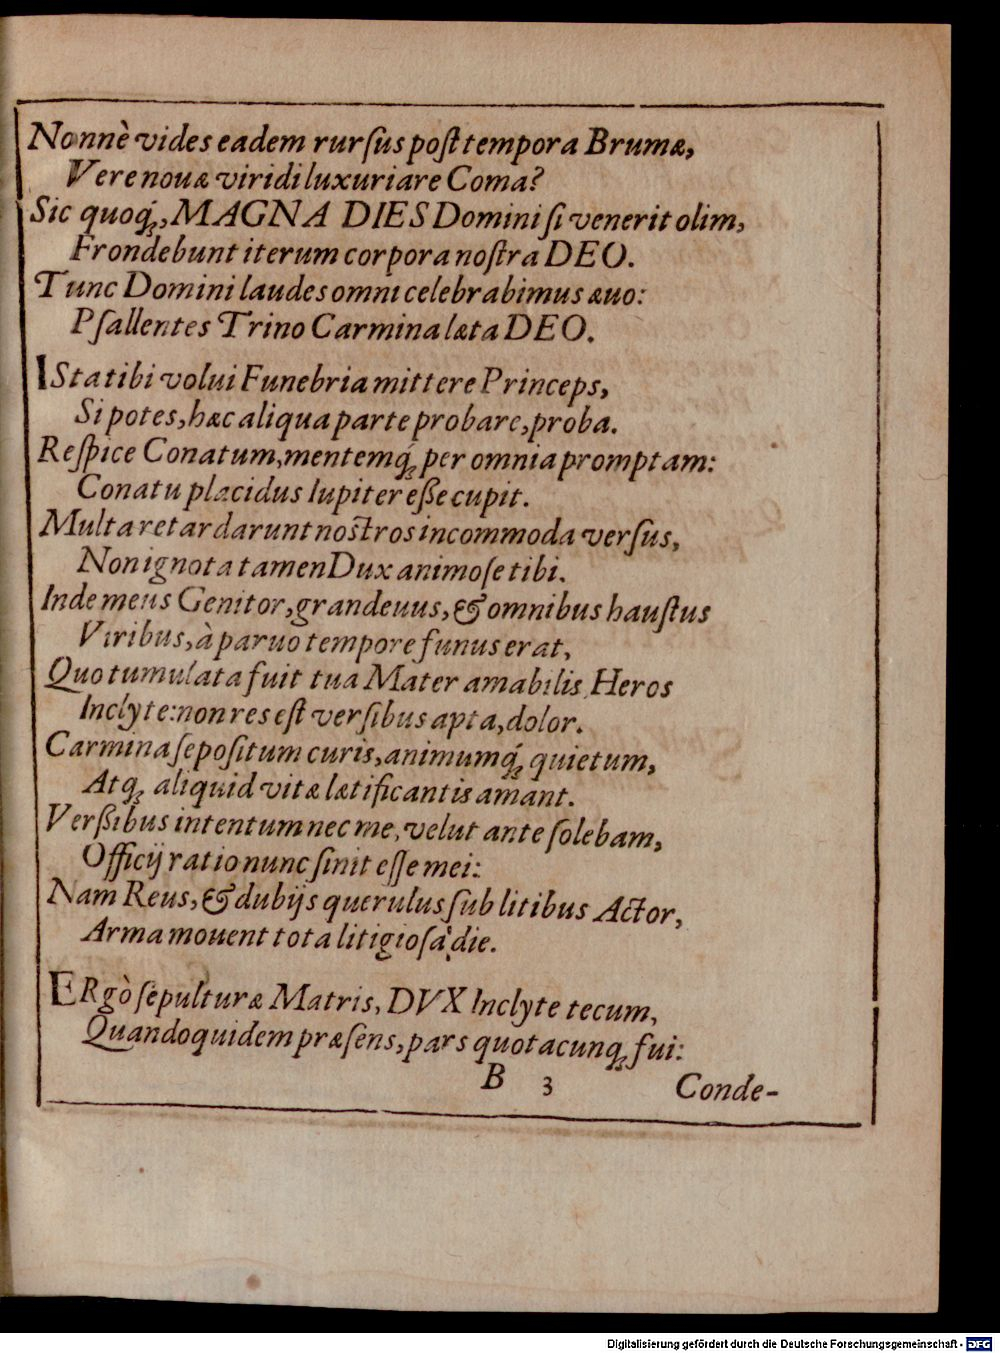 Nonnè vides eadem rurſus poſt tempora Brumæ,
Vere nouæ viridi luxuriare Coma?
Sic quoq́;, MAGNA DIES Domini ſi venerit olim,
Frondebunt iterum corpora noſtra DEO.
Tunc Domini laudes omni celebrabimus æuo:
Pſallentes Trino Carmina læta DEO.
ISta tibi volui Funebria mittere Princeps,
Si potes, hæc aliqua parte probare, proba.
Reſpice Conatum, mentemq́; per omnia promptam:
Conatu placidus Iupiter eße cupit.
Multa retardarunt noſtros incommoda verſus,
Non ignota tamen Dux animoſe tibi.
Inde meus Genitor, grandeuus, & omnibus hauſtus
Viribus, à paruo tempore funus erat,
Quo tumulata fuit tua Mater amabilis Heros
Inclyte: non res eſt verſibus apta, dolor.
Carmina ſepoſitum curis, animumq́; quietum,
Atq; aliquid vitæ lætificantis amant.
Verßibus intentum nec me, velut ante ſolebam,
Officij ratio nunc ſinit eſſe mei:
Nam Reus, & dubijs querulus ſub litibus Actor,
Arma mouent tota litigioſa die.
ERgò ſepulturæ Matris, DVX Inclyte tecum,
Quandoquidem præſens, pars quotacunq; fui:
B 3 Conde-
Digitalisierung gefördert durch die Deutsche Forschungsgemeinschaft - DFG